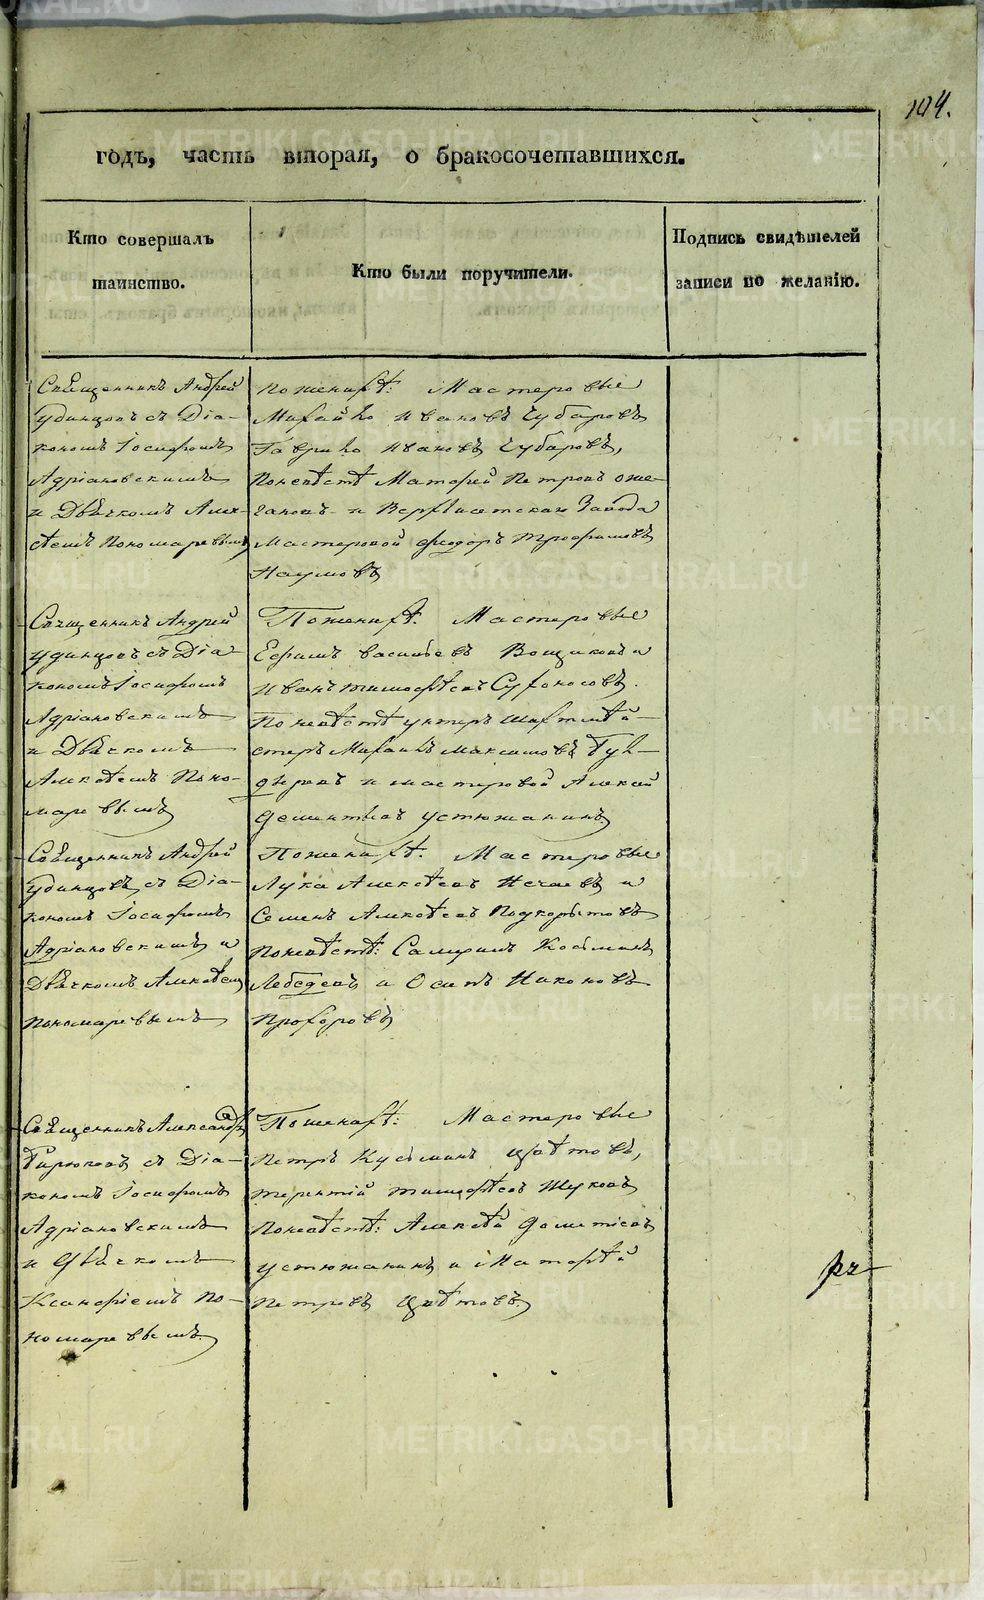 104.
годъ, часть вторая, о бракосочетавшихся.
Кто совершалъ
таинство.
Кто были поручители.
Подпись свидѣтелей
записи по желанію.
Священникъ Андрей
Удинцовъ съ Діа-
кономъ Іосифомъ
Адріановскимъ
и Дьячкомъ Алек-
сѣемъ Пономаревымъ
По женихѣ: Мастеровые
Михайло Ивановъ Чубаровъ
Гаврило Ивановъ Чубаровъ,
По невѣстѣ Матфей Петровъ Оже-
гановъ и Верхъисетскаго Завода
Мастеровой Федоръ Трофимовъ
Наумовъ
Священникъ Андрей
Удинцовъ съ Діа-
кономъ Іосифомъ
Адріановскимъ
и Дьячкомъ
Алексѣемъ Поно-
маревымъ
По женихѣ: Мастеровые
Ефимъ Васильевъ Вощиковъ и
Иванъ Тимофѣевъ Сухоносовъ.
По невѣстѣ унтеръ Шихтмей-
стеръ Михаилъ Максимовъ
и мастеровой Алексей
Дементьевъ Устюжанинъ
Священникъ Андрей
Удинцовъ съ Діа-
кономъ Іосифомъ
Адріановскимъ и
Дьячкомъ Алексѣемъ
Пономаревымъ
По женихѣ: Мастеровые
Лука Алексѣевъ и
Семенъ Алексѣевъ Подкорытовъ
По невѣстѣ: Козьминъ
Лебедевъ и Осипъ Никоновъ
Прохоровъ
Священникъ Александръ
Бирюковъ съ Діа-
кономъ Іосифомъ
Адріановскимъ
и Дьячкомъ
Ксанфіемъ По-
номаревымъ
По женихѣ: Мастеровые
Петръ Кузьминъ Цвѣтовъ,
Терентій Тимофѣевъ Щуковъ
По невѣстѣ: Алексѣй
Устюжанинъ и Матфѣй
Петровъ Цвѣтовъ
METRIKI.GASO-URAL.RU